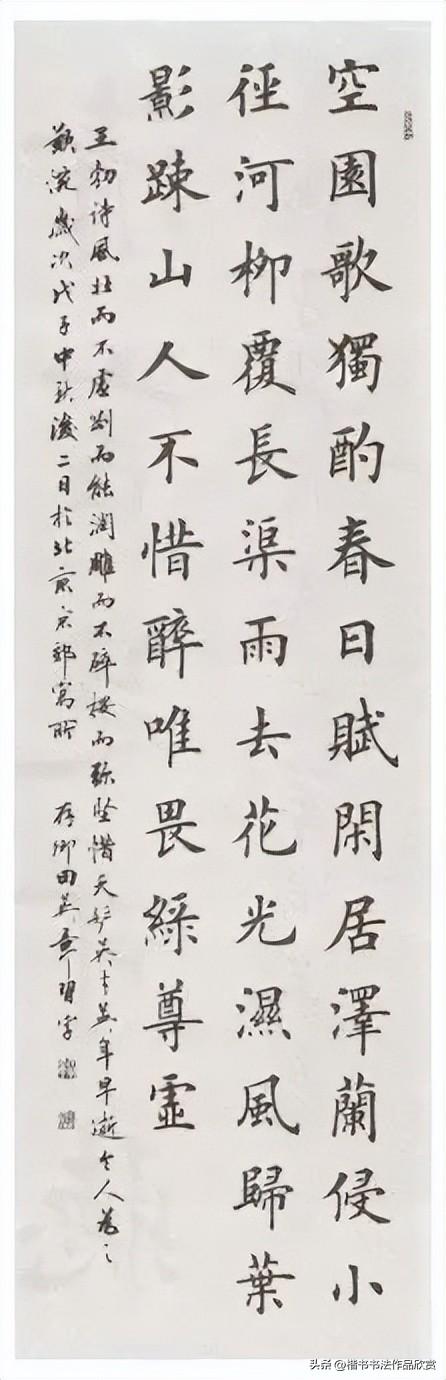 空園歌獨酌春日賦閑居澤蘭侵小
徑河柳覆長渠雨去花光濕風歸葉
影疎山人不惜醉唯畏綠尊虛
王勃诗風壯而不虛剛而能潤雕而不碎按而弥坚惜天妒英才英年早逝令人為之
歲次戊子中秋後二日於北京京郊寓所 存卿田英章習字
头条 @楷书书法作品欣赏